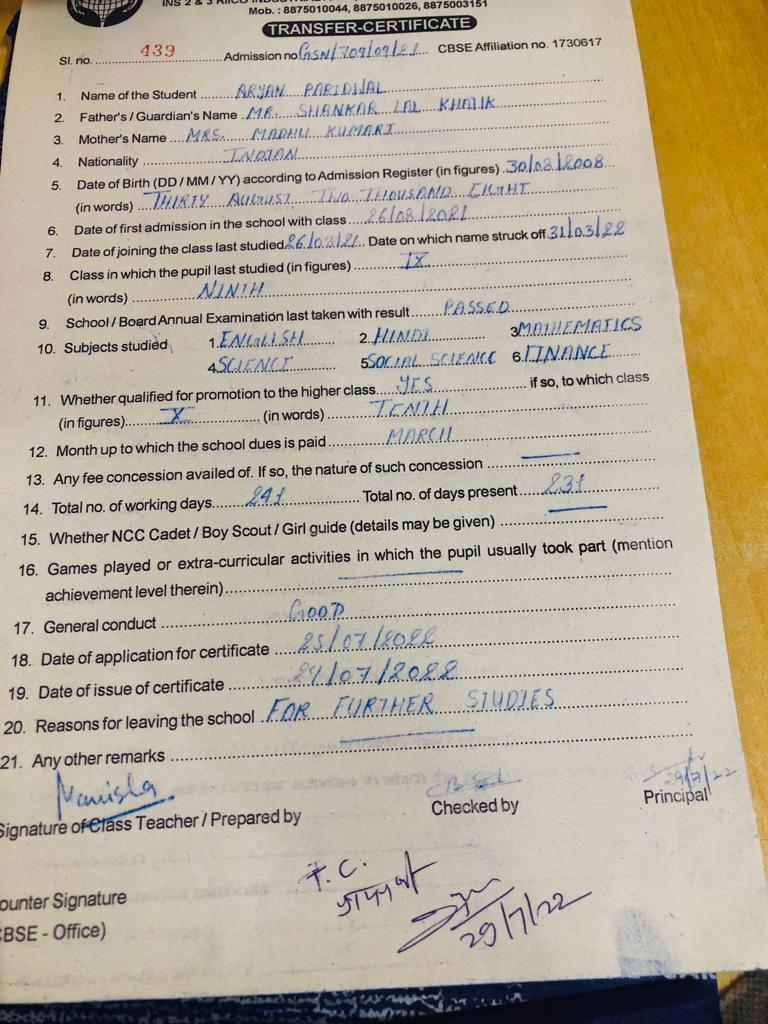 INS 2 & 3 RIICO
Mob. : 8875010044, 8875010026, 8875003151
TRANSFER-CERTIFICATE
Sl. no. 439 Admission no GSN/709/09/21 CBSE Affiliation no. 1730617
1. Name of the Student ARYAN PARIDWAL
2. Father's / Guardian's Name MR. SHANKAR LAL KHATIK
3. Mother's Name MRS. MADHU KUMARI
4. Nationality INDIAN
5. Date of Birth (DD / MM / YY) according to Admission Register (in figures) 30/08/2008
(in words) THIRTY AUGUST TWO THOUSAND EIGHT
6. Date of first admission in the school with class 26/08/2021
7. Date of joining the class last studied 26/08/21 Date on which name struck off 31/03/22
8. Class in which the pupil last studied (in figures) IX
(in words) NINTH
9. School / Board Annual Examination last taken with result PASSED
10. Subjects studied 1. ENGLISH 2. HINDI 3 MATHEMATICS
4. SCIENCE 5 SOCIAL SCIENCE 6. FINANCE
11. Whether qualified for promotion to the higher class YES if so, to which class
(in figures) X (in words) TENTH
12. Month up to which the school dues is paid MARCH
13. Any fee concession availed of. If so, the nature of such concession
14. Total no. of working days 241 Total no. of days present 231
15. Whether NCC Cadet / Boy Scout / Girl guide (details may be given)
16. Games played or extra-curricular activities in which the pupil usually took part (mention
achievement level therein)
17. General conduct GOOD
18. Date of application for certificate 25/07/2022
19. Date of issue of certificate 29/07/2022
20. Reasons for leaving the school FOR FURTHER STUDIES
21. Any other remarks
Manisha
29/7/22
Signature of Class Teacher / Prepared by Checked by Principal
T.C.
29/7/22
ounter Signature
CBSE - Office)